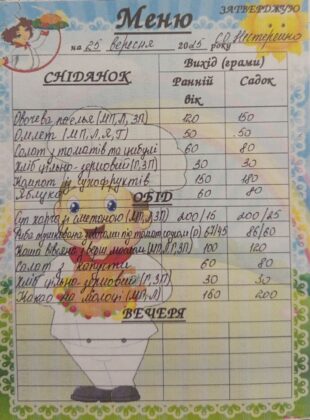 ЗАТВЕРДЖУЮ
Меню
на 25 вересня 2025 року
Вихід (грами)
СНІДАНОК Ранній вік Садок
(МП, Л, ЗП) 120 150
Омлет (МП, Л, Я, Г) 50 50
Салат із томатів та цибулі 60 80
Хліб цільно-зерновий (Г, ЗП) 30 30
Компот із сухофруктів 150 180
Яблука 60 80
ОБІД
Суп харчо зі сметаною (МП, Л, ЗП) 200/15 200/25
Риба під томатом (Р) 67/45 86/60
Каша (МП, Л) 100 120
Салат з капусти 60 80
Хліб цільно-зерновий (Г, ЗП) 30 30
Какао на молоці (МП, Л) 150 200
ВЕЧЕРЯ